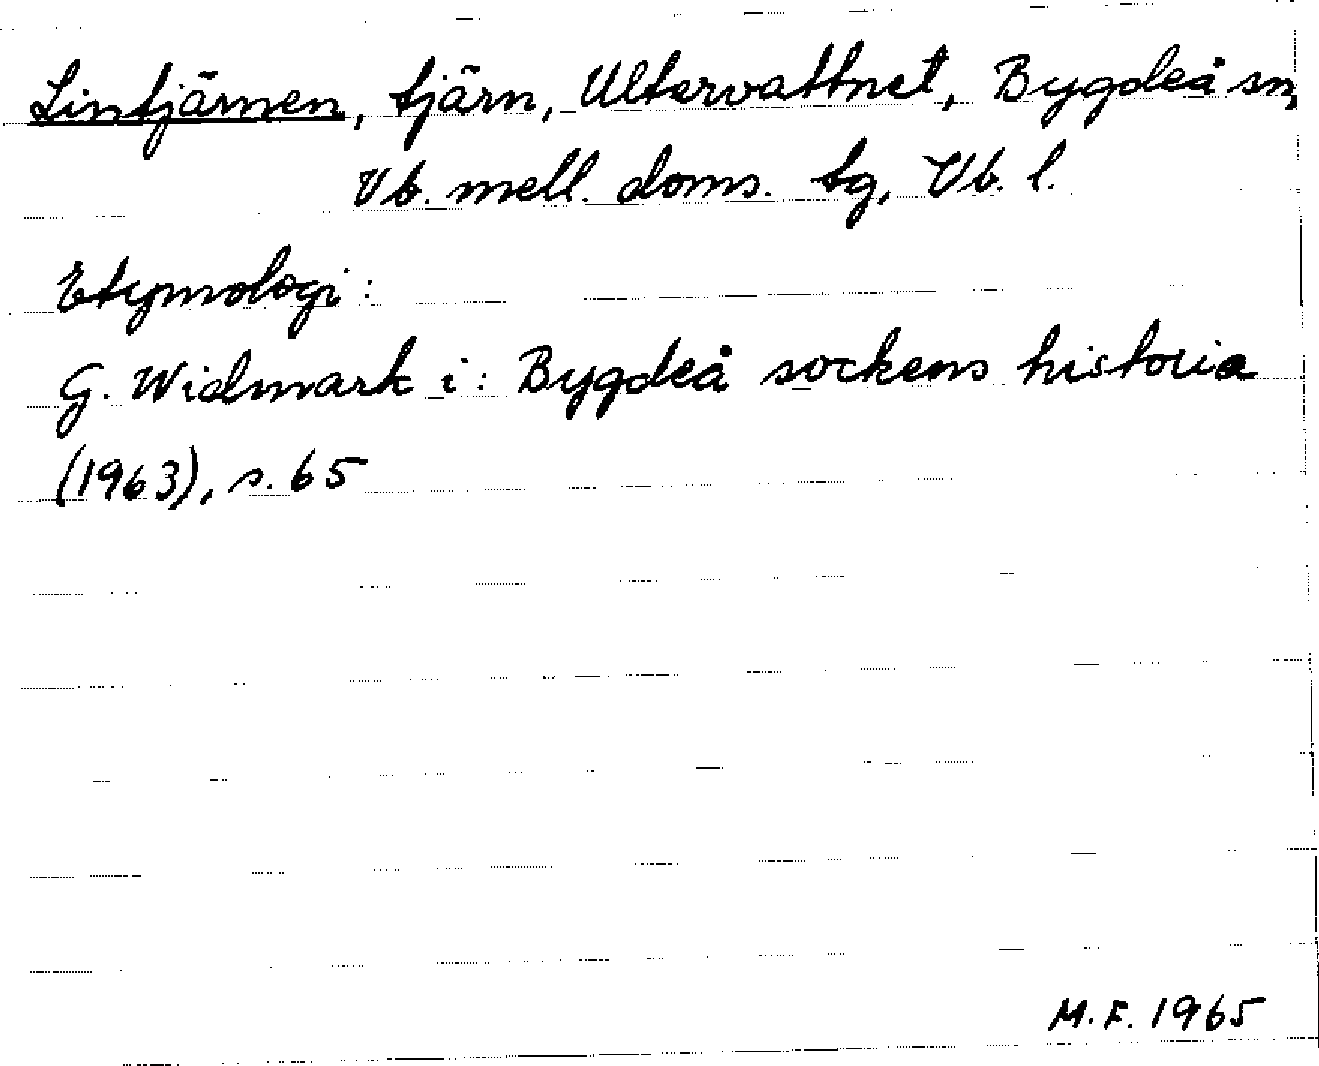 Lintjärnen, tjärn, Ultervattnet, Bygdeå sn,
Vb. mell. doms. tg, Vb. l.
Etymologi:
G. Widmark i: Bygdeå sockens historia
(1963), s. 65
M.F. 1965